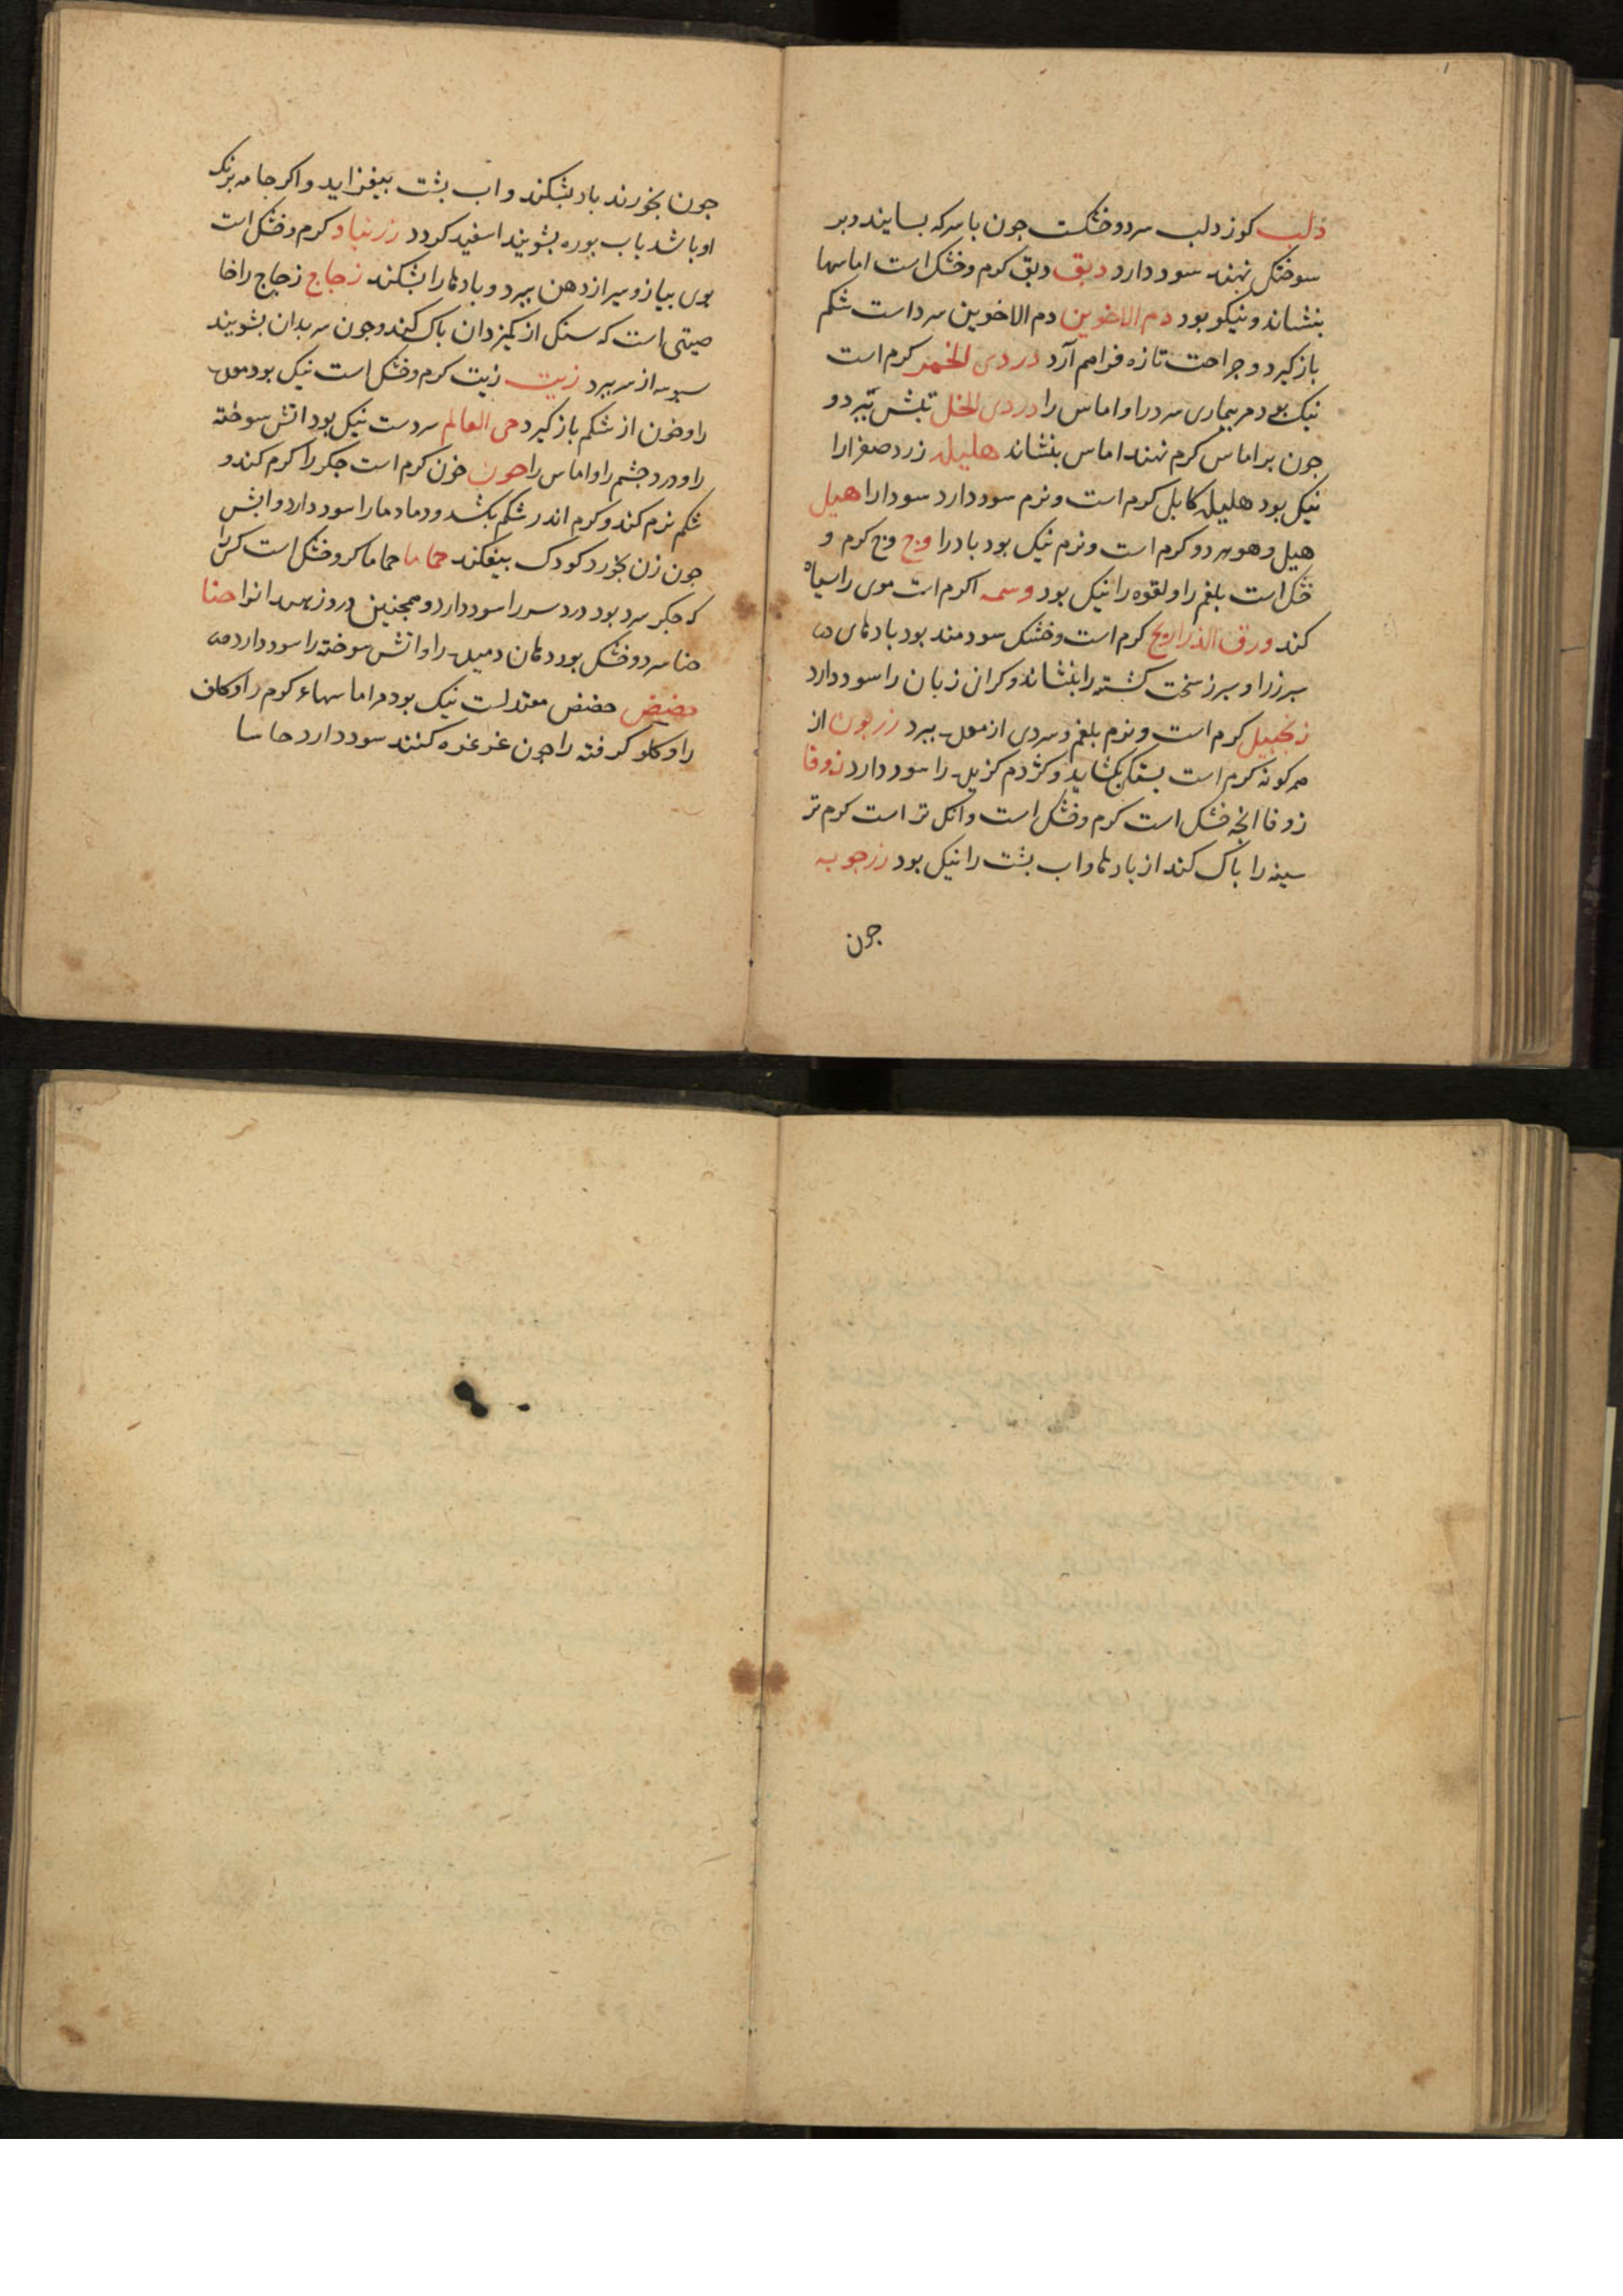 دلب کوز دلب سرد و خشکست جون با سرکه بسایند و بر
سوختکی نهند سود دارد دبق دبق کرم و خشک است اماسها
بنشاند و نیکو بود دم الاخوین دم الاخوین سرد است شکم
باز کیرد و جراحت تازه فراهم آرد دردی الخمر کرم است
نیک بود مر بیماری سرد را و اماس را دردی الخل تبش ببرد و
جون بر اماس کرم نهند اماس بنشاند هلیله زرد صفرا را
نیک بود هلیله کابلی کرم است و نرم سود دارد سودا را هیل
هیل و هو هر دو کرم است و نرم نیک بود باد را وج وج کرم و
خشک است بلغم را و لقوه را نیک بود وسمه کرم است موی را سیاه
کند ورق الذراریح کرم است و خشک سودمند بود بادهای
سبرز را و سبرز سخت کشته را بنشاند و کران زبان را سود دارد
زنجبیل کرم است و نرم بلغم و سردی از معده ببرد زربون از
هر کونه کرم است بستکی بکشاید و کژدم کزیده را سود دارد زوفا
زوفا انجه خشک است کرم و خشک است و انک تر است کرم تر
سینه را باک کند از بادها و اب بشت را نیک بود زرجوبه
جون
جون بخورند باد بشکند و اب بشت بیفزاید و اکر جامه برنک
او باشد باب بوره بشویند اسفید کردد زرنباد کرم و خشک است
بوی بیاز و سیر از دهن ببرد و بادها را بشکند زجاج زجاج را خا
صیتی است که سنک از کمیزدان باک کند و جون سر بدان بشویند
سبوسه از سر ببرد زیت زیت کرم و خشک است نیک بود معده
را و خون از شکم باز کیرد حی العالم سردست نیک بود اتش سوخته
را و درد جشم را و اماس را خون خون کرم است جکر را کرم کند و
شکم نرم کند و کرم اندر شکم بکشد و دمادمها را سود دارد و ابش
جون زن بخورد کودک بیفکند حماما حماما کرو خشک است کسی را
که جکر سرد بود درد سر را سود دارد و همجنین انرا حنا
حنا سرد و خشک بود دهان دمیده را و اتش سوخته را سود دارد
حضض حضض معتدلست نیک بود مر اماسهاء کرم را و کلف
را و کلو کرفته را جون غرغره کنند سود دارد حاسا